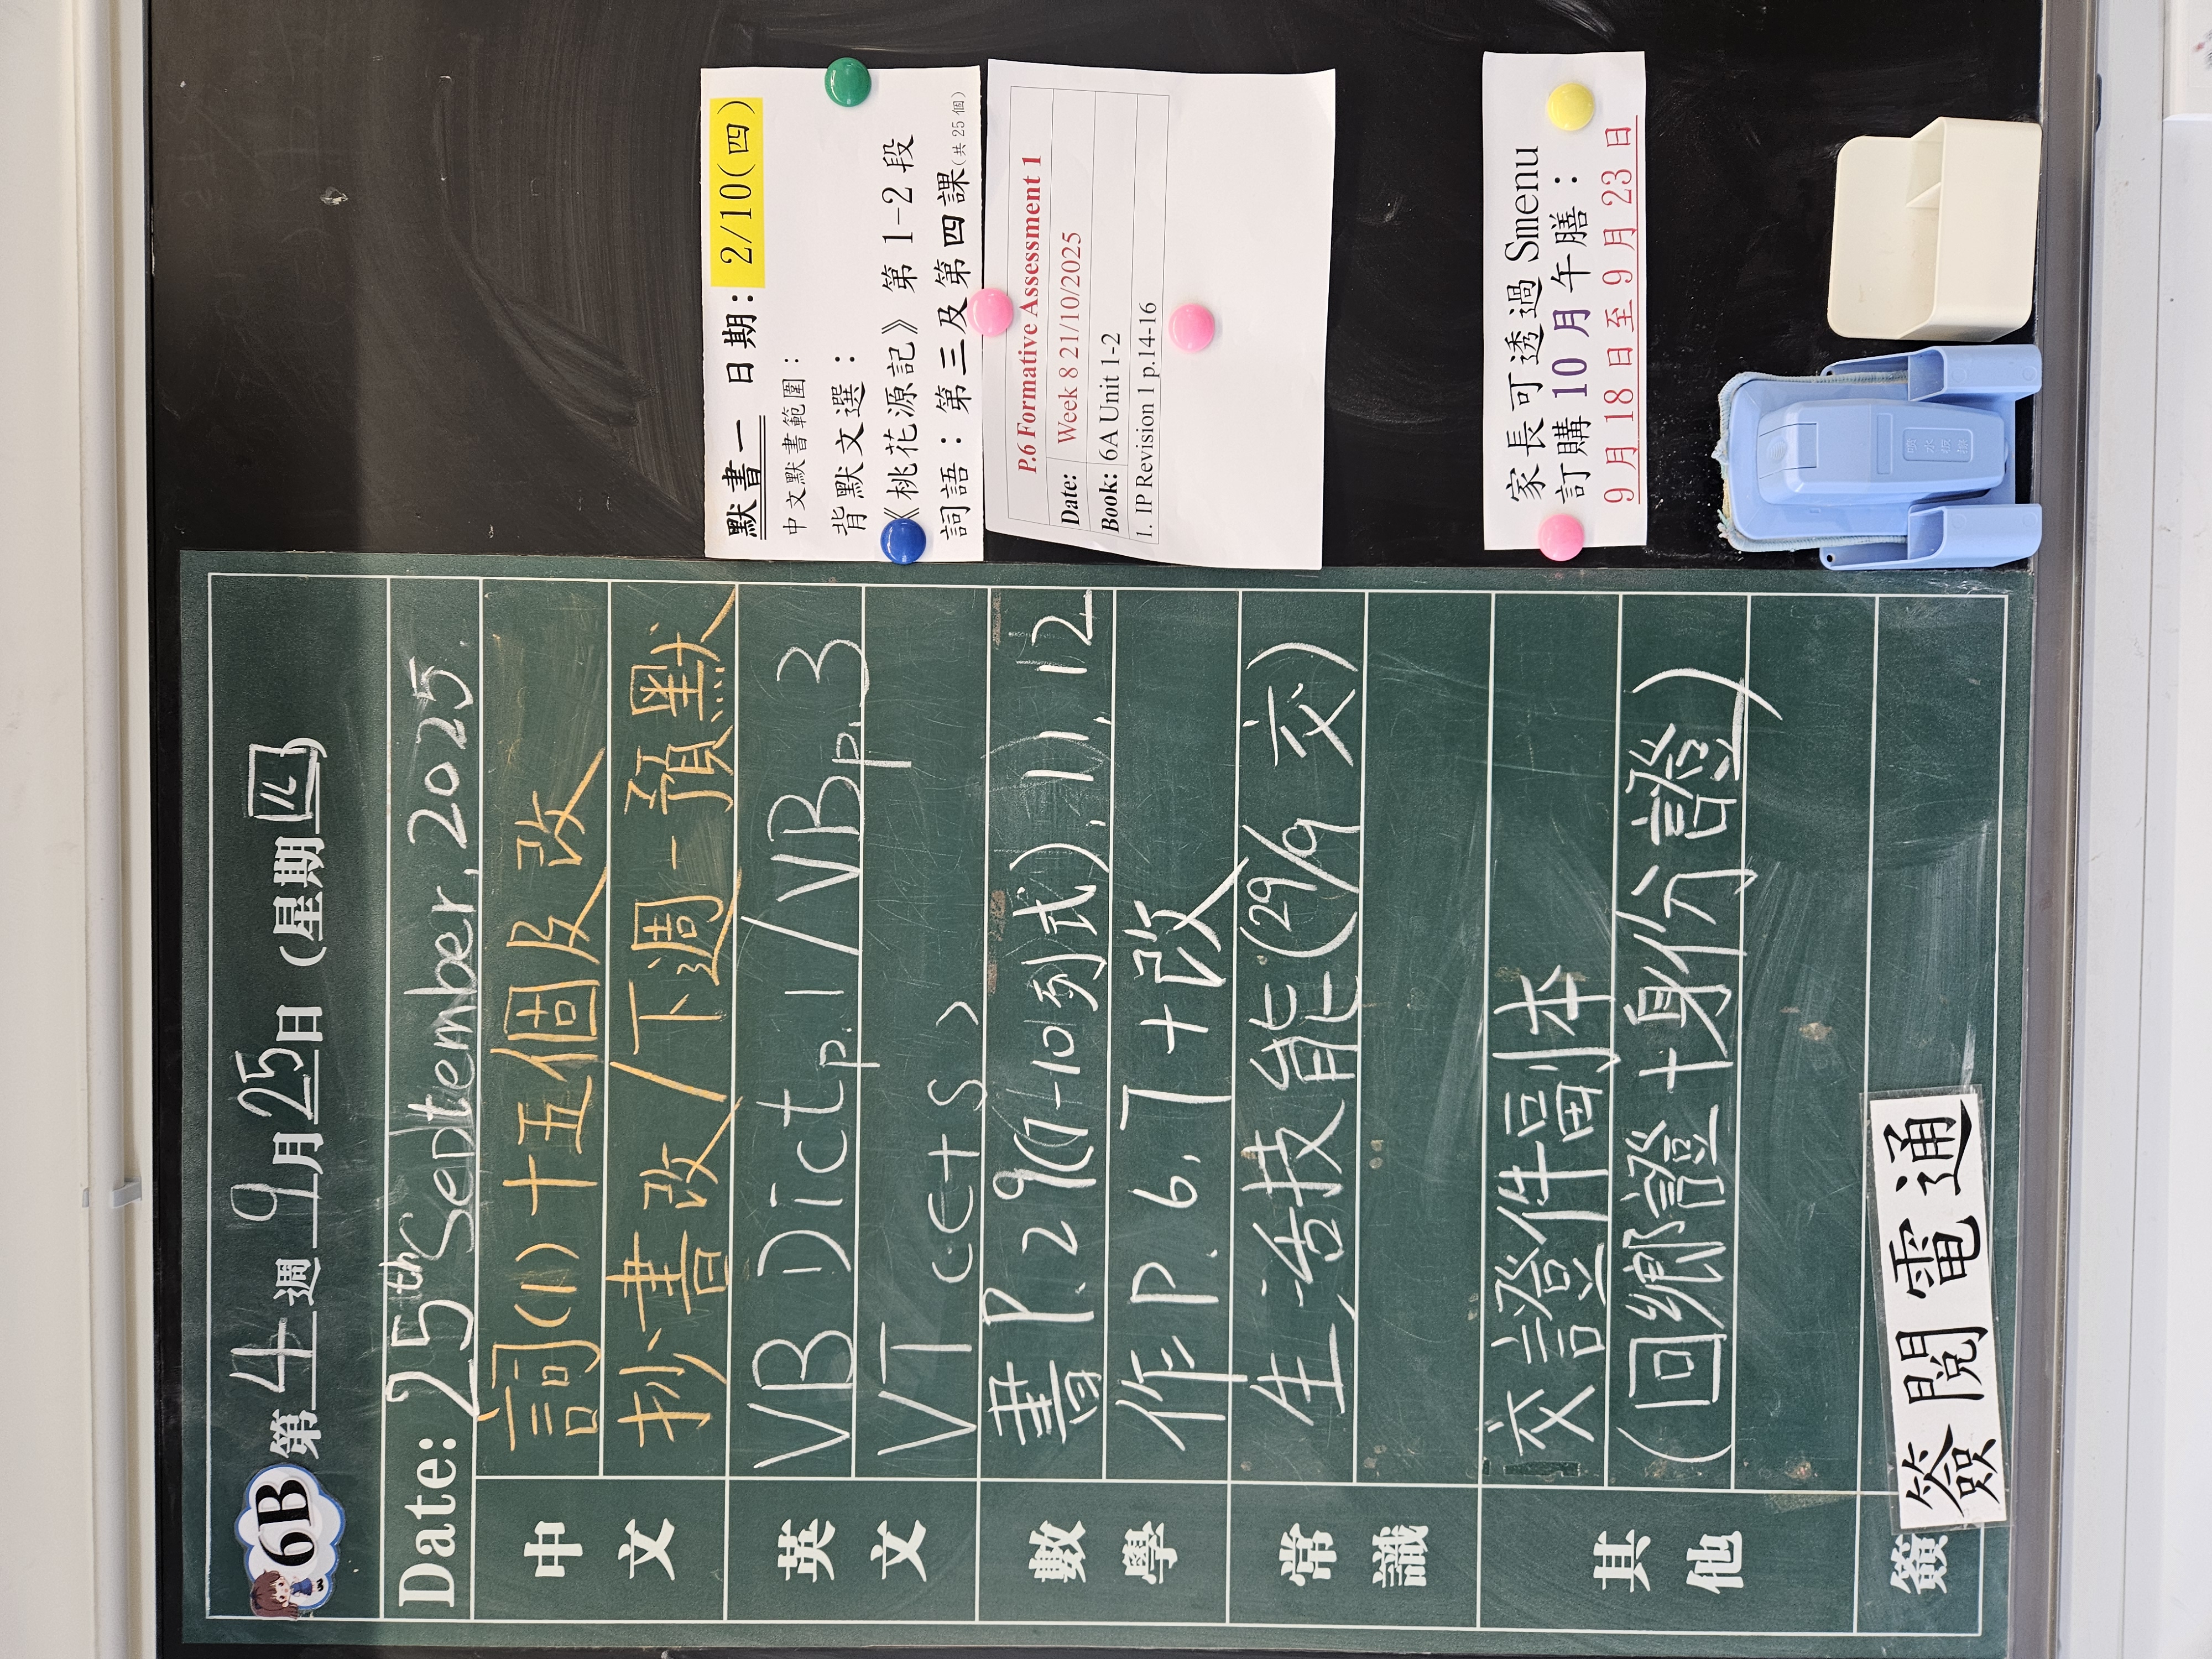 6B 第 4 週 9 月 25 日 (星期 四)
Date: 25th September, 2025.
中文
詞(1)十五個及改
抄書改/下週一預默
英文
VB Dict p.1/VB p.3
VT (C+S)
數學
書P.29(1-10列式),11,12
作P.6,7+改
常識
生活技能(29/9交)
其他
交證件副本
(回鄉證+身份證)
簽
簽閱電通
默書一 日期:2/10(四)
中文默書範圍:
背默文選:
《桃花源記》第1-2段
詞語:第三及第四課(共25個)
P.6 Formative Assessment 1
Date: Week 8 21/10/2025
Book: 6A Unit 1-2
1. IP Revision 1 p.14-16
家長可透過 Smenu
訂購 10 月午膳:
9 月 18 日至 9 月 23 日